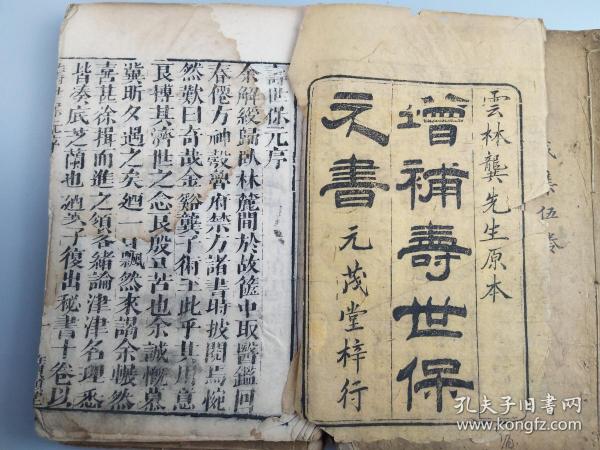 雲林龔先生原本
增補壽世保
元書
元茂堂梓行
壽世保元序
余解綬歸臥林麓間於故篋中取醫鑑回
春僊方神彀魯府禁方諸書時披閱焉惋
然歎曰奇哉金谿龔子術至此乎且用意
良博其濟世之念良殷且苦也余誠慨慕
冀昕夕遇之矣廼一日飄然來謁余帳然
喜甚徐揖而進之領畧緒論津津名理悉
皆奏底芝蘭也廼龔子復出秘書十卷以
孔夫子旧书网
www.kongfz.com